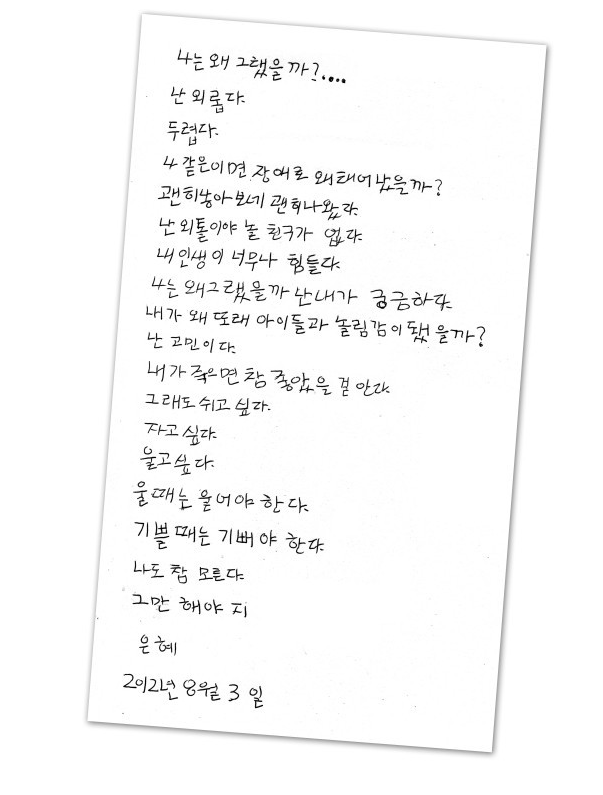 나는 왜 그랬을까?....
난 외롭다.
두렵다.
나 같은이면 장애로 왜태어났을까?
괜히낳아보네 괜히나왔다.
난 외톨이야 놀 친구가 없다.
내인생이 너무나 힘들다.
나는 왜그랬을까 난내가 궁금하다.
내가 왜 또래 아이들과 놀림감이됐을까?
난 고민이다.
내가죽으면 참 좋았을 걸 안다.
그래도 쉬고 싶다.
자고 싶다.
울고싶다.
울때는 울어야 한다.
기쁠때는 기뻐야 한다.
나도 참 모른다.
그만 해야 지
은혜
2012년 8월 3 일